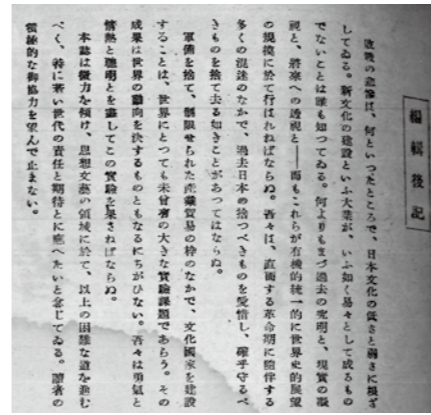 編輯後記
敗戰の意味は、何といつたところで、日本文化の低さと弱さに根ざ
してゐる。新文化の建設といふ大業が、いふ如く易々として成るもの
でないことは誰も知つてゐる。何よりもまづ過去の究明と、現實の凝
視と、將來への透視と――而もこれらが有機的統一的に世界史的展望
の規模に於て行はれねばならぬ。吾々は、直面する革命期に隨伴する
多くの混迷のなかで、過去日本の捨つべきものを愛惜し、確乎守るべ
きものを捨て去る如きことがあつてはならぬ。
軍備を捨て、制限せられた產業貿易の枠のなかで、文化國家を建設
することは、世界にとつても未曾有の大きな實驗課題であらう。その
成果は世界の動向を決するものともなるにちがひない。吾々は勇氣と
情熱と聰明とを盡してこの實驗を果さねばならぬ。
本誌は微力を傾け、思想文藝の領域に於て、以上の困難な道を進む
べく、特に若い世代の責任と期待とに應へたいと念じてゐる。讀者の
積極的な御協力を望んで止まない。